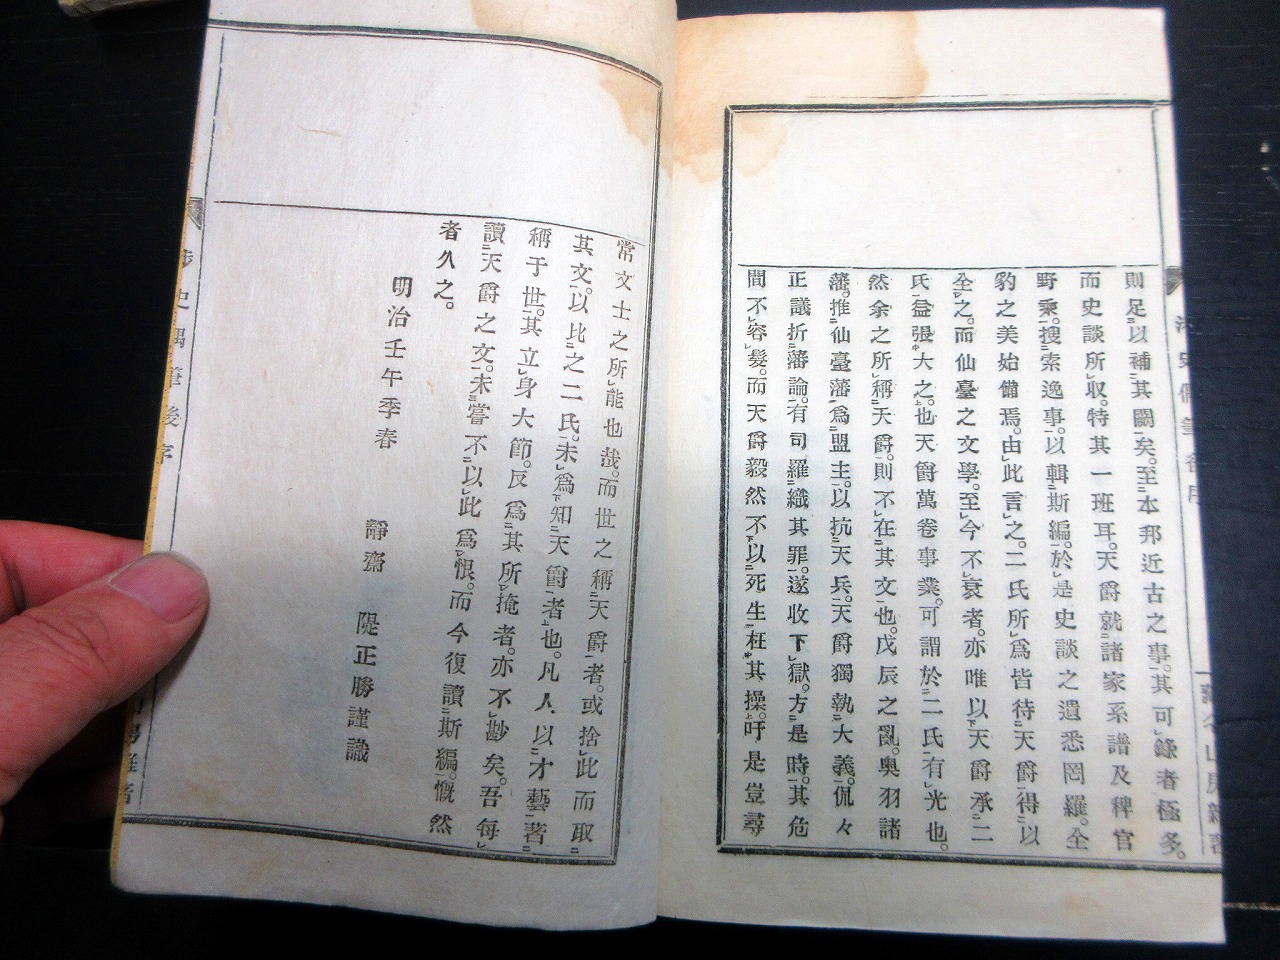 則足以補其闕矣。至本邦近古之事。其可錄者極多。
而史談所收。特其一班耳。天爵就諸家系譜及稗官
野乘。搜索逸事。以輯斯編。於是史談之遺悉罔羅。全
豹之美始備焉。由此言之。二氏所爲皆待天爵得以
全之。而仙臺之文學。至今不衰者。亦唯以天爵承二
氏益張大之。也天爵萬卷事業。可謂於二氏有光也。
然余之所稱天爵。則不在其文也。戊辰之亂。奧羽諸
藩。推仙臺藩爲盟主。以抗天兵。天爵獨執大義。侃々
正議折藩論。有司羅織其罪。遂收下獄。方是時。其危
間不容髮。而天爵毅然不以死生枉其操。吁是豈尋
常文士之所能也哉。而世之稱天爵者。或捨此而取
其文。以比之二氏。未爲知天爵者也。凡人以才藝著
稱于世。其立身大節。反爲其所掩者。亦不尠矣。吾每
讀天爵之文。未嘗不以此爲恨。而今復讀斯編。慨然
者久之。
明治壬午季春
靜齋 隄正勝謹識
涉史偶筆後序